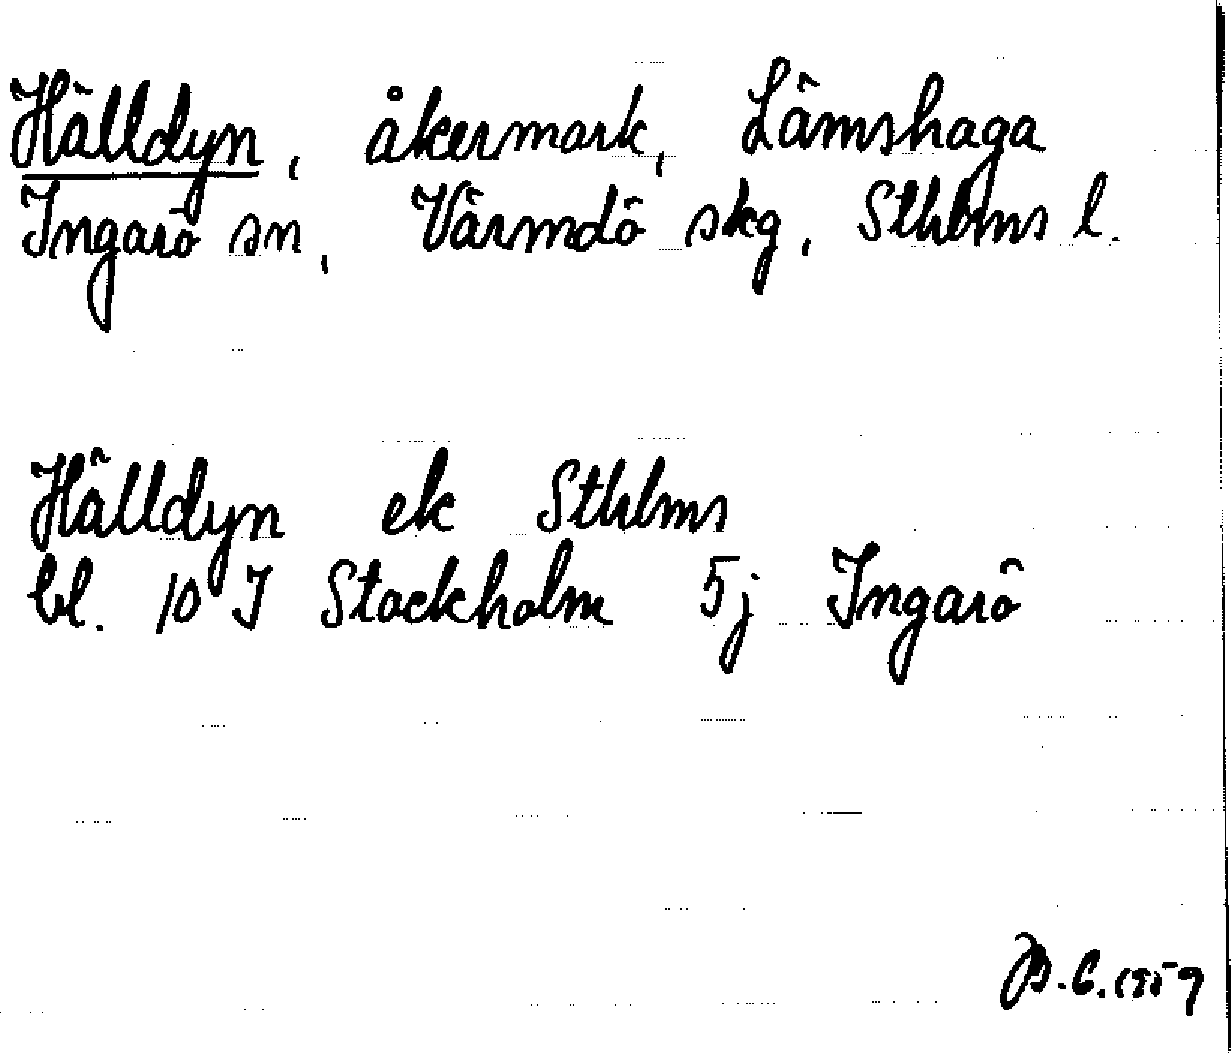 Hälldyn, åkermark, Lämshaga
Ingarö sn, Värmdö skg, Sthlms l.
Hälldyn ek Sthlms
bl. 10 I Stockholm 5j Ingarö
B.C. 1959